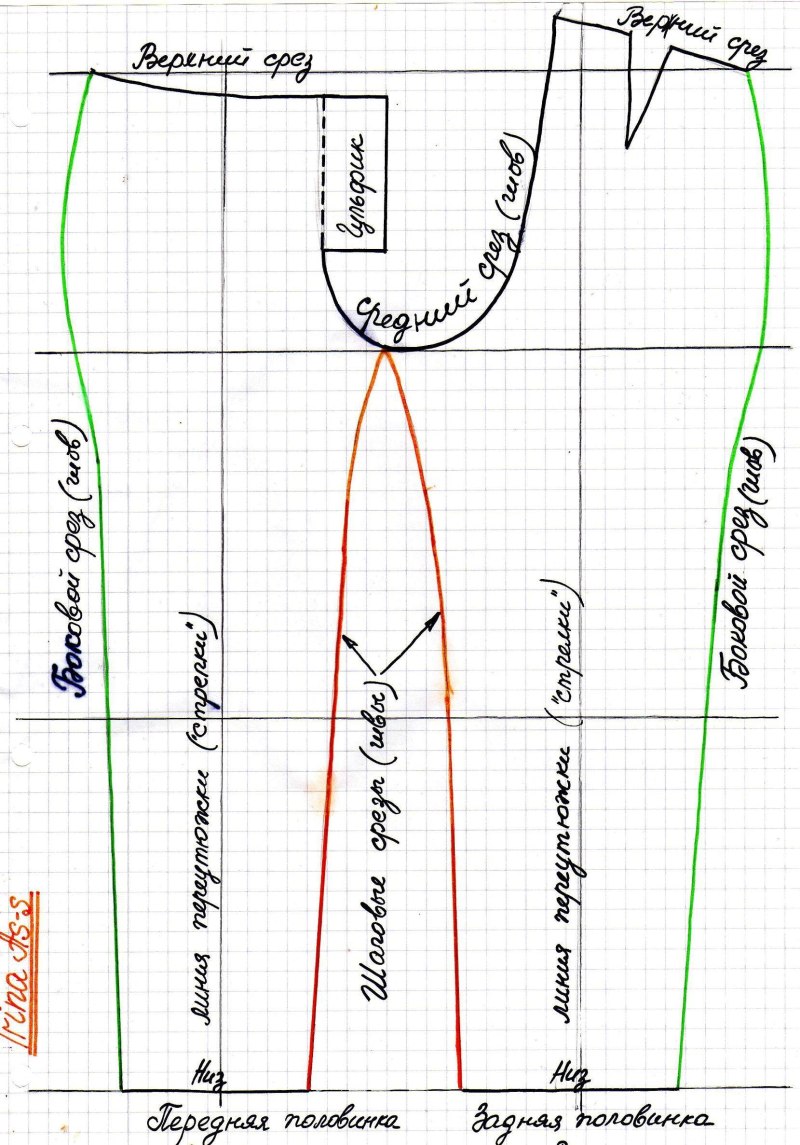 Верхний срез
Верхний срез
Гульфик
средний срез (шов)
Боковой срез (шов)
Боковой срез (шов)
линия переутюжки ("стрелки")
Шаговые срезы (швы)
линия переутюжки ("стрелки")
Irina As-s
Низ
Низ
Передняя половинка
Задняя половинка